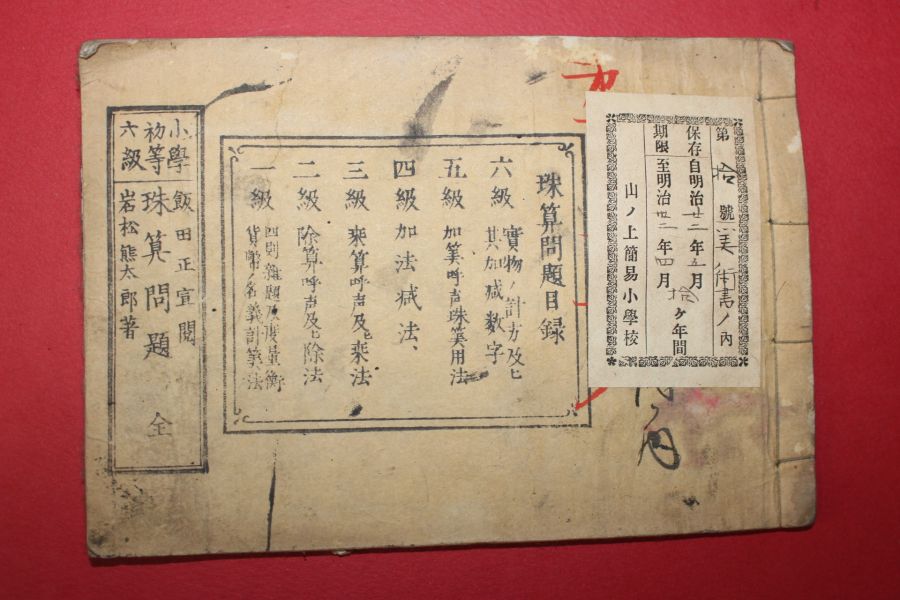 第拾號美術書ノ内
保存自明治廿二年五月
期限至明治卅二年四月
拾ケ年間
山ノ上簡易小學校
珠算問題目録
六級 實物ノ計方及ヒ其加減数字
五級 加筭呼声珠筭用法
四級 加法减法、
三級 乗算呼声及ヒ乗法
二級 除算呼声及ヒ除法
一級 四則雜題及度量衡貨幣名義計筭法
飯田正宣閲
小學初等六級 珠算問題 全
岩松熊太郎著